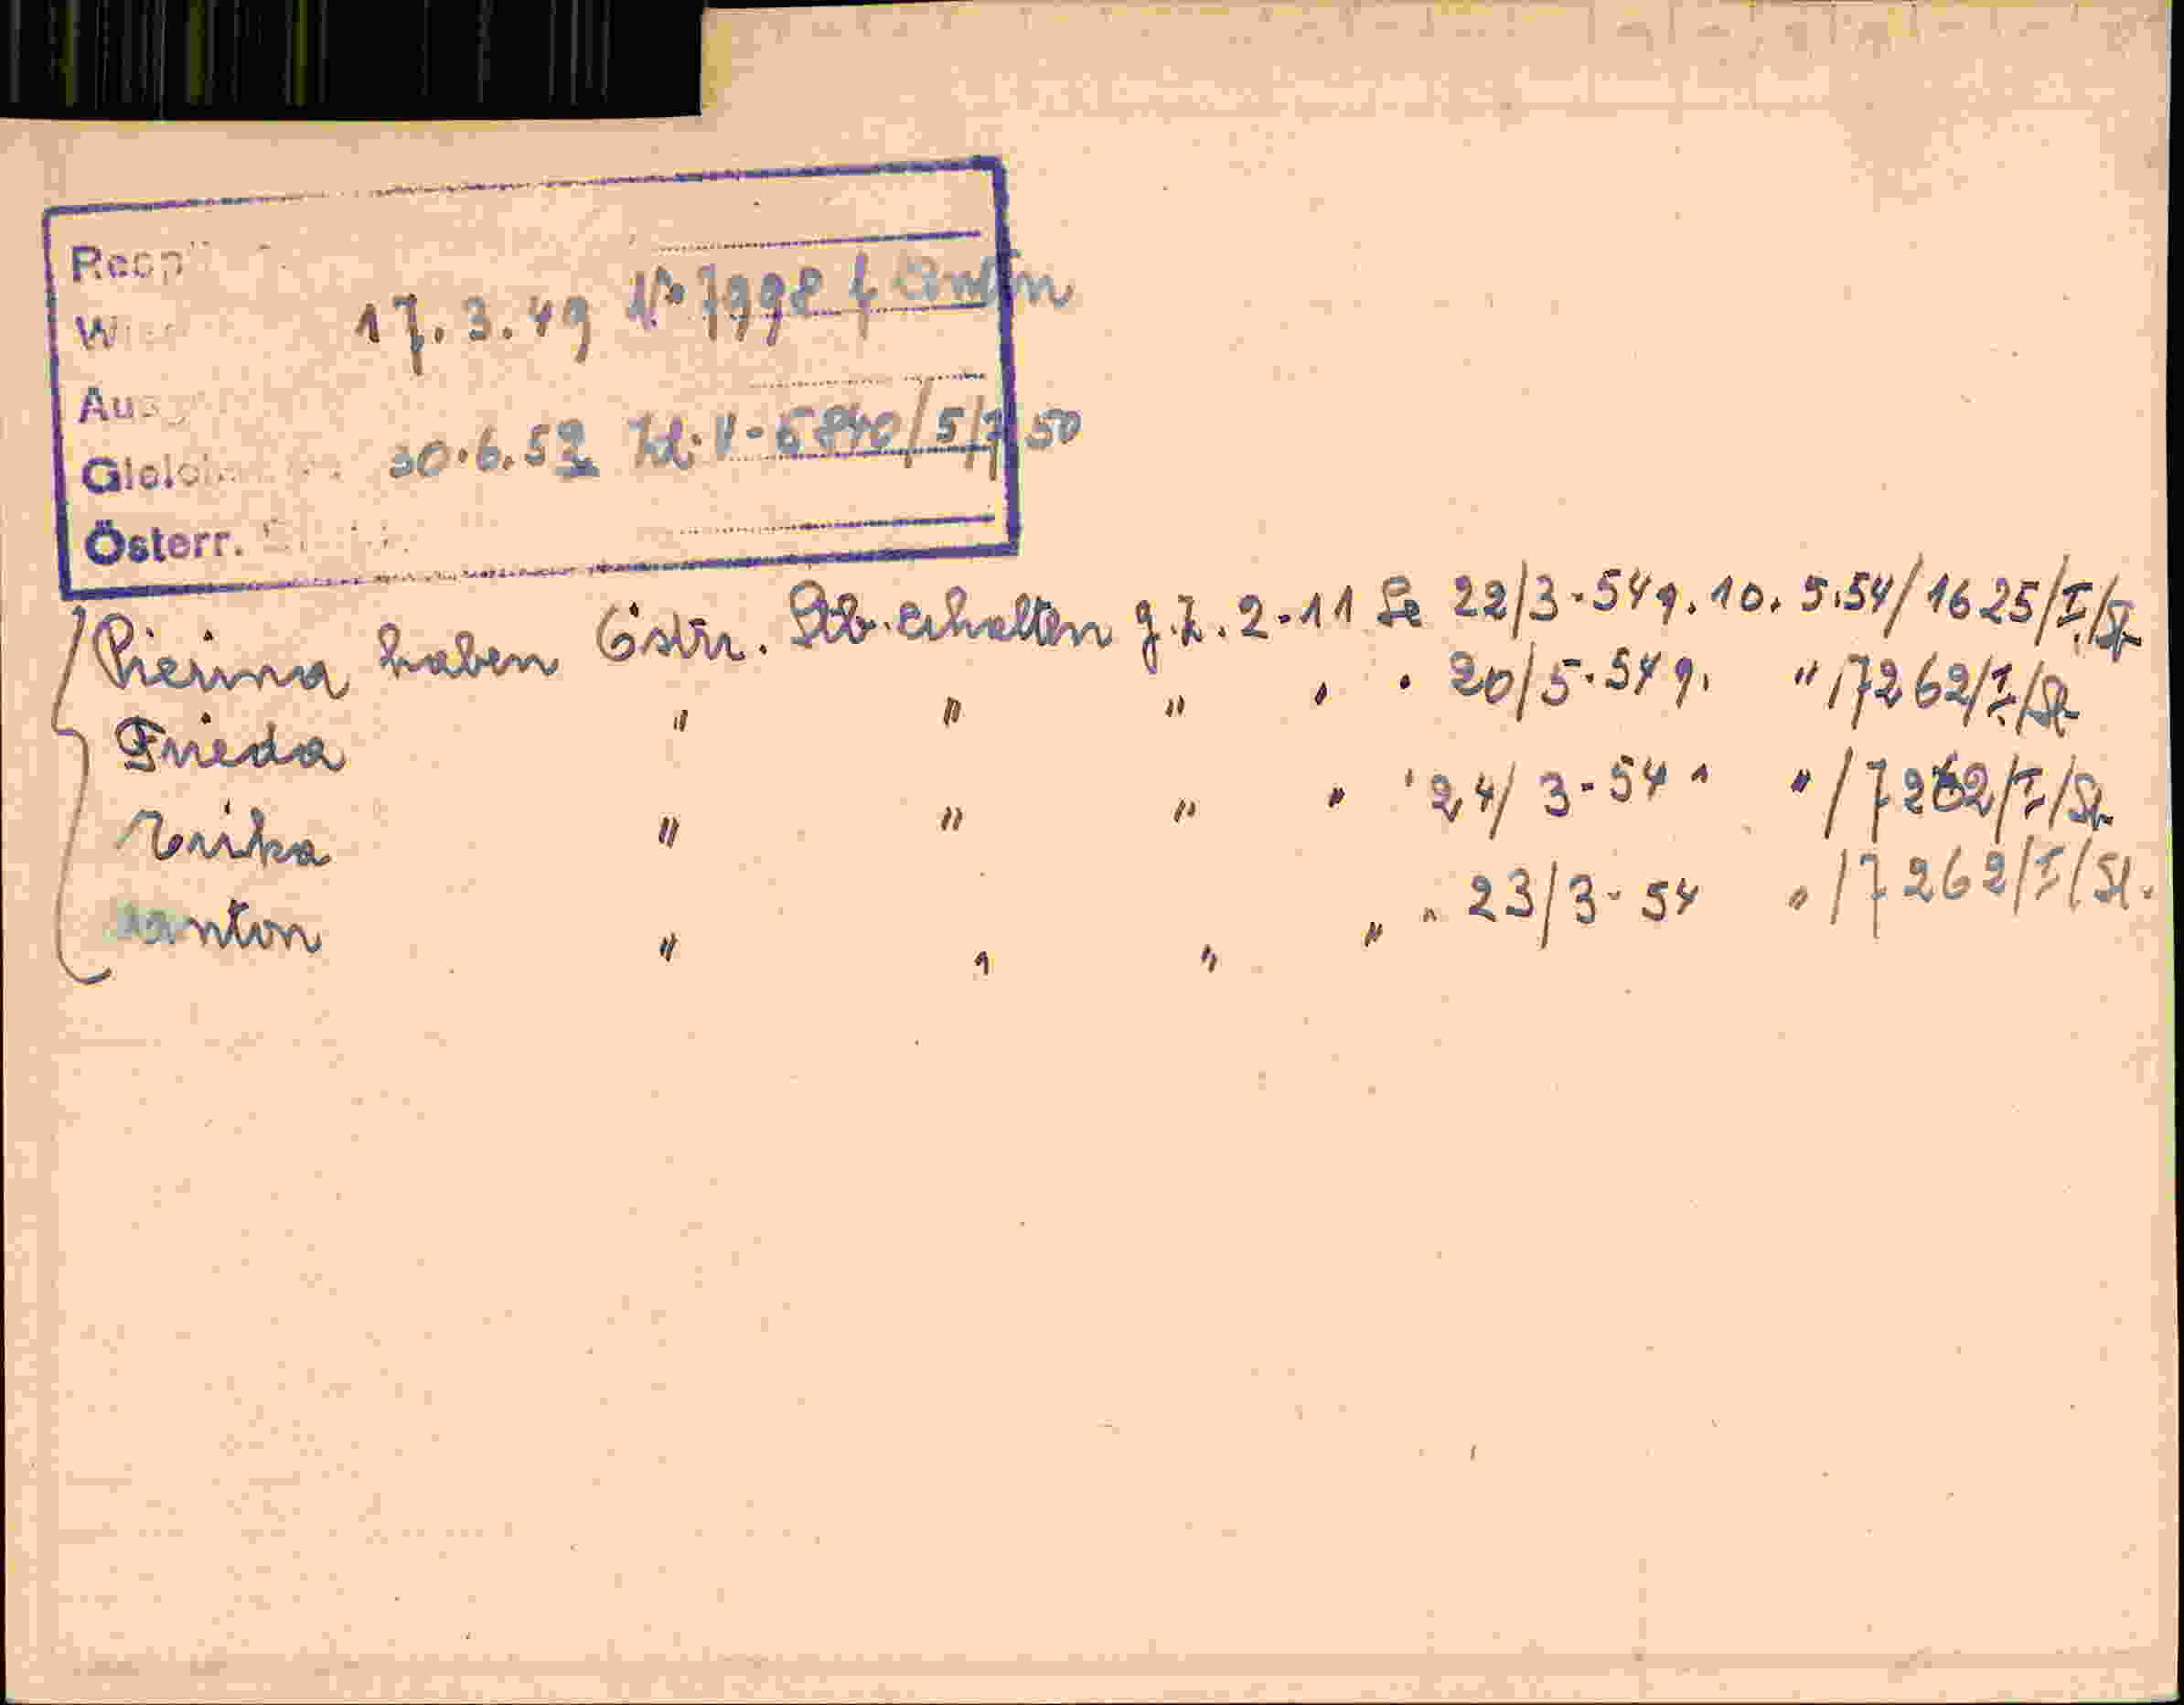 17.3.49 No 7998 f Anton
30.6.52 Zl. V-6840/5/7 50
Österr.
Pierina haben Östrr. Stb. erhalten g.Z. 2-11 Se 22/3-54 g. 10. 5.54/1625/I/St
Frieda " " " " " 20/5-54 g. " 17262/I/St
Erika " " " " " 24/3-54 " " /7262/I/St.
Anton " " " " " 23/3-54 " /7262/I/St.